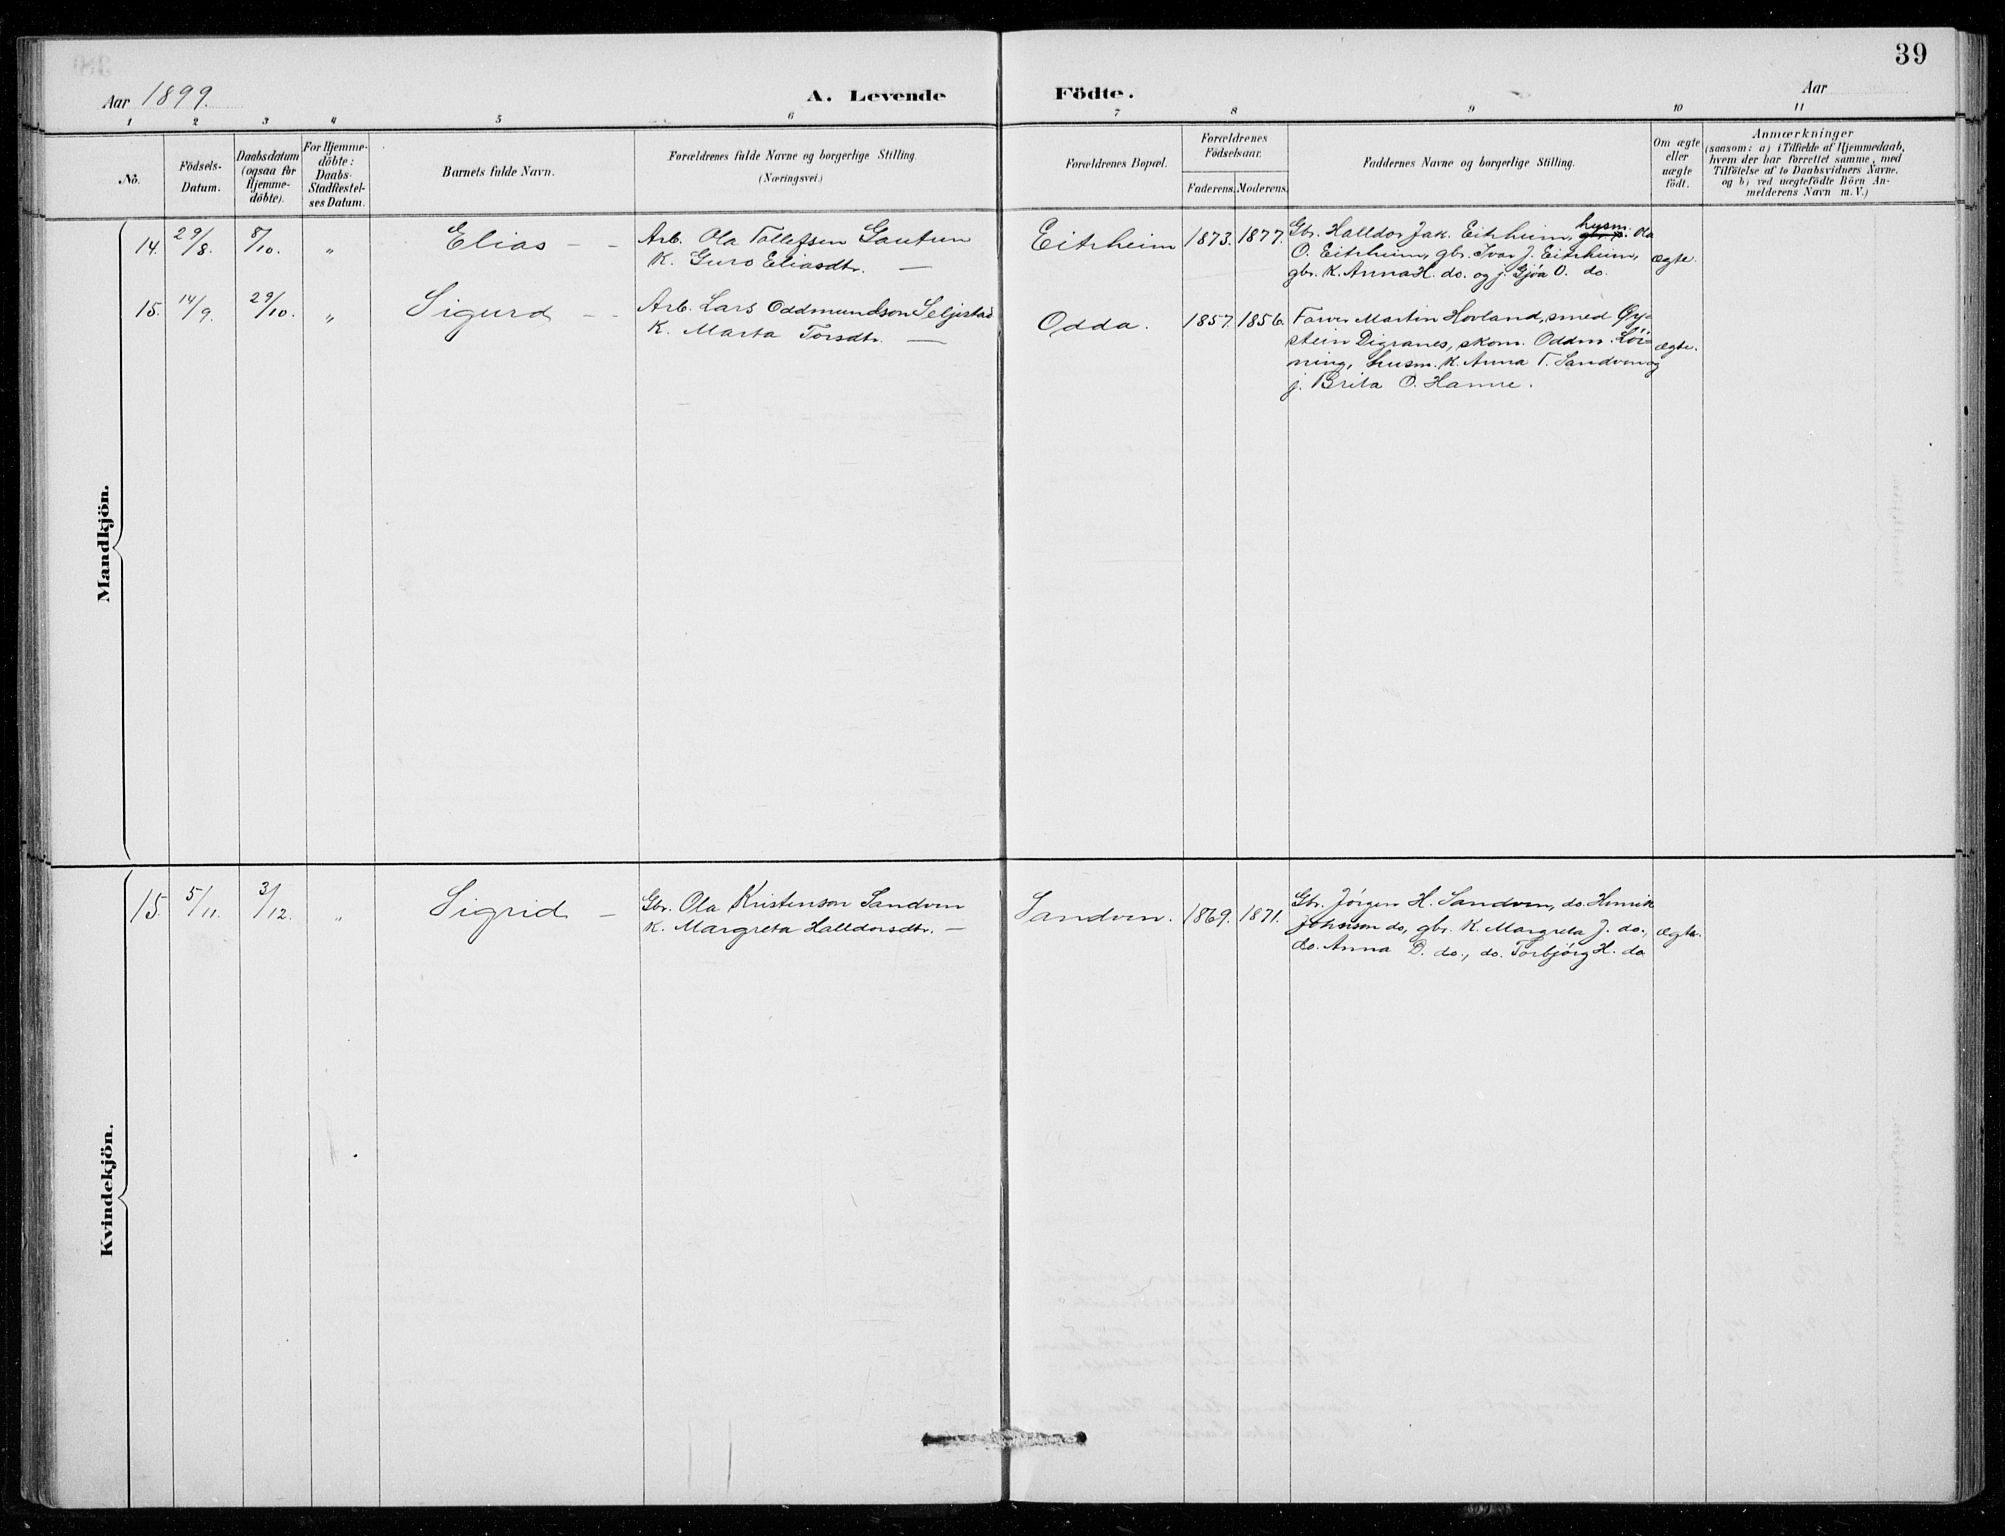 39
Aar 1899.
A. Levende Födte.
Aar
1 2 3 4 5 6 7 8 9 10 11
No.
Födsels-
Datum.
Daabsdatum
(ogsaa for
Hjemme-
döbte).
For Hjemme-
döbte:
Daabs-
Stadfestel-
ses Datum.
Barnets fulde Navn.
Forældrenes fulde Navne og borgerlige Stilling.
(Næringsvei.)
Forældrenes Bopæl.
Forældrenes
Födselsaar.
Faderens. Moderens.
Faddernes Navne og borgerlige Stilling.
Om ægte
eller
uægte
födt.
Anmærkninger
(saasom: a) i Tilfælde af Hjemmedaab,
hvem der har forrettet samme, med
Tilföielse af to Daabsvidners Navne.
og b) ved uægtefödte Börn An-
melderens Navn m. V.)
Mandkjön.
14. 29/8. 8/10. " Elias - -
Arb. Ola Tollefsen Gautun
K. Guro Eliasdtr. —
Eitrheim 1873. 1877.
Gbr. Halldor Jak. Eitrheim, husm. Ola
O. Eitrheim, gbr. Ivar J. Eitrheim,
gbr. K. Anna H. do. og j. Gjöa O. do.
ægte.
15. 14/9. 29/10. " Sigurd - -
Arb. Lars Oddmundson Seljestad
K. Marta Torsdtr. —
Odda. 1857. 1856.
Farver Martin Hovland, smed Øy-
stein Digranes, skom. Oddm. Lön-
ning, husm. K. Anna T. Sandven og
j. Brita O. Hamre.
ægte.
Kvindekjön.
15. 5/11. 3/12. " Sigrid —
Gbr. Ola Kristenson Sandven
K. Margreta Halldorsdtr. —
Sandven. 1869. 1871.
Gbr. Jörgen H. Sandven, do. Henrik
Johnson do, gbr. K. Margreta J. do.,
do. Anna D. do., do. Torbjörg H. do
ægte.